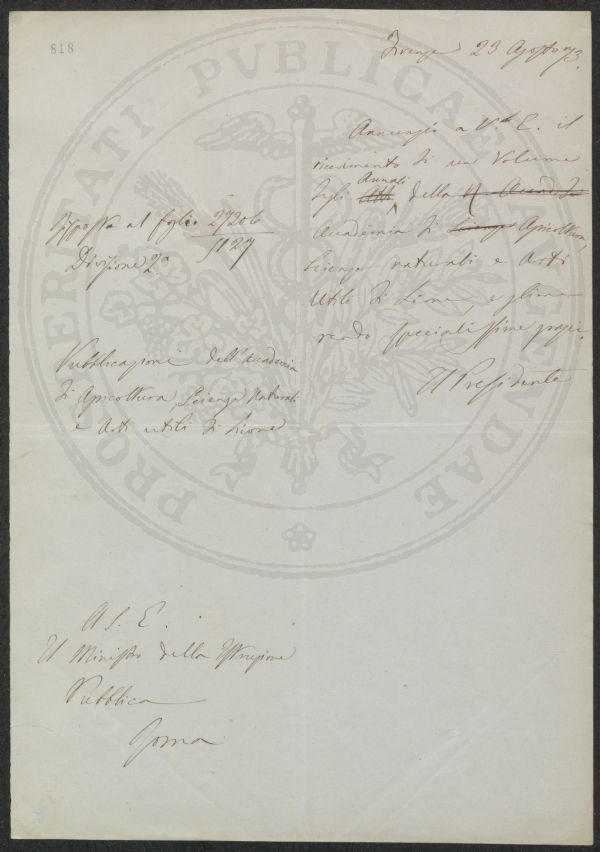 818
Firenze 23 Agosto 73.
Annunzio a V. E. il
ricevimento di un Volume
degli Atti Annali della R. Accad. di
Accademia di Scienze Apicoltura,
Scienze naturali e Arti
Utili di Lione, e gliene
rendo specialissime grazie.
Il Presidente
Risposta al foglio 27206
5127
Divisione 2a
Pubblicazioni dell'Accademia
di Apicoltura, Scienze Naturali
e Arti utili di Lione
A S. E.
Il Ministro della Istruzione
Pubblica
Roma
PROSPERITATI PVBLICAE AVGENDAE